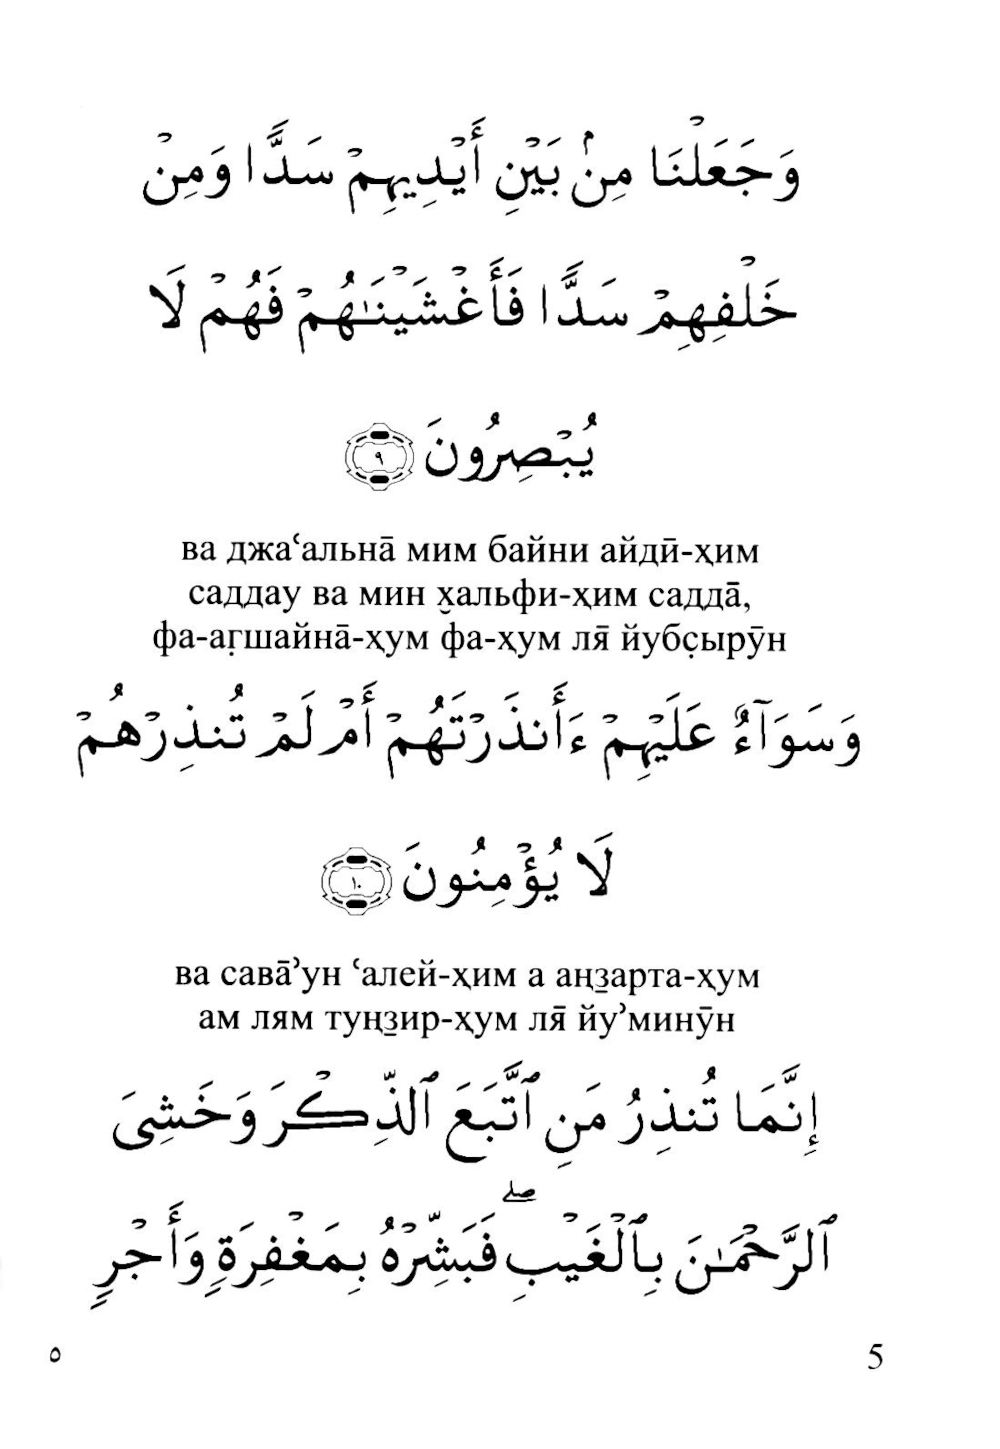 وَجَعَلْنَا مِنۢ بَيْنِ أَيْدِيهِمْ سَدًّا وَمِنْ
خَلْفِهِمْ سَدًّا فَأَغْشَيْنَٰهُمْ فَهُمْ لَا
يُبْصِرُونَ ٩
ва джаʻальнā мим байни айдӣ-ҳим
саддау ва мин х̮альфи-ҳим саддā,
фа-аг̣шайнā-ҳум фа-ҳум ля̄ йубс̣ырӯн
وَسَوَآءٌ عَلَيْهِمْ ءَأَنذَرْتَهُمْ أَمْ لَمْ تُنذِرْهُمْ
لَا يُؤْمِنُونَ ١٠
ва савāʼун ʻалей-ҳим а аңз̱арта-ҳум
ам лям туңз̱ир-ҳум ля̄ йуʼминӯн
إِنَّمَا تُنذِرُ مَنِ ٱتَّبَعَ ٱلذِّكْرَ وَخَشِىَ
ٱلرَّحْمَٰنَ بِٱلْغَيْبِ ۖ فَبَشِّرْهُ بِمَغْفِرَةٍ وَأَجْرٍ
٥ 5